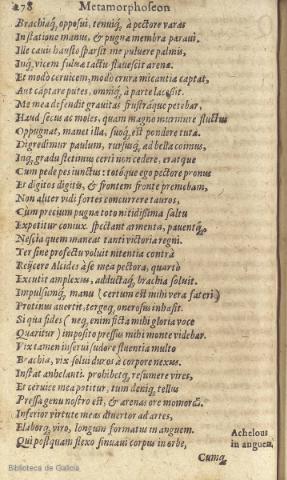 278 Metamorphoseon
Brachiaq́, opposui, tenuiq́, à pectore varas
In statione manus, & pugnæ membra paraui.
Ille cauis hausto sparsit me puluere palmis,
Inq́, vicem fuluæ tactu flauescit arenæ.
Et modo ceruicem, modo crura micantia captat,
Aut captare putes, omniq́, à parte lacessit.
Me mea defendit grauitas frustráque petebar,
Haud secus ac moles, quam magno murmure fluctus
Oppugnat, manet illa, suoq́, est pondere tuta.
Digredimur paulum, rursusq́, ad bella coimus,
Inq́, gradu stetimus certi non cedere, eratque
Cum pede pes iunctus: totóque ego pectore pronus
Et digitos digitis, & frontem fronte premebam,
Non aliter vidi fortes concurrere tauros,
Cùm precium pugnæ toto nitidissima saltu
Expetitur coniux. spectant armenta, pauentq́,
Nescia quem maneat tanti victoria regni.
Ter sine profectu voluit nitentia contrà
Reijcere Alcides à se mea pectora, quartò
Excutit amplexus, adductaq́, brachia soluit.
Impulsumq́, manu (certum est mihi vera fateri)
Protinus auertit, tergoq́, onerosus inhæsit.
Si qua fides (neq́, enim ficta mihi gloria voce
Quæritur) imposito pressus mihi monte videbar.
Vix tamen inserui sudore fluentia multo
Brachia, vix solui duros à corpore nexus.
Instat anhelanti. prohibetq́, resumere vires,
Et ceruice mea potitur, tum deniq́, tellus
Pressa genu nostro est, & arenas ore momordi.
Inferior virtute meas diuertor ad artes,
Elaborq́, viro, longum formatus in anguem.
Qui postquam flexos sinuaui corpus in orbes,
Achelous
in anguem.
Cumq́,
Biblioteca de Galicia